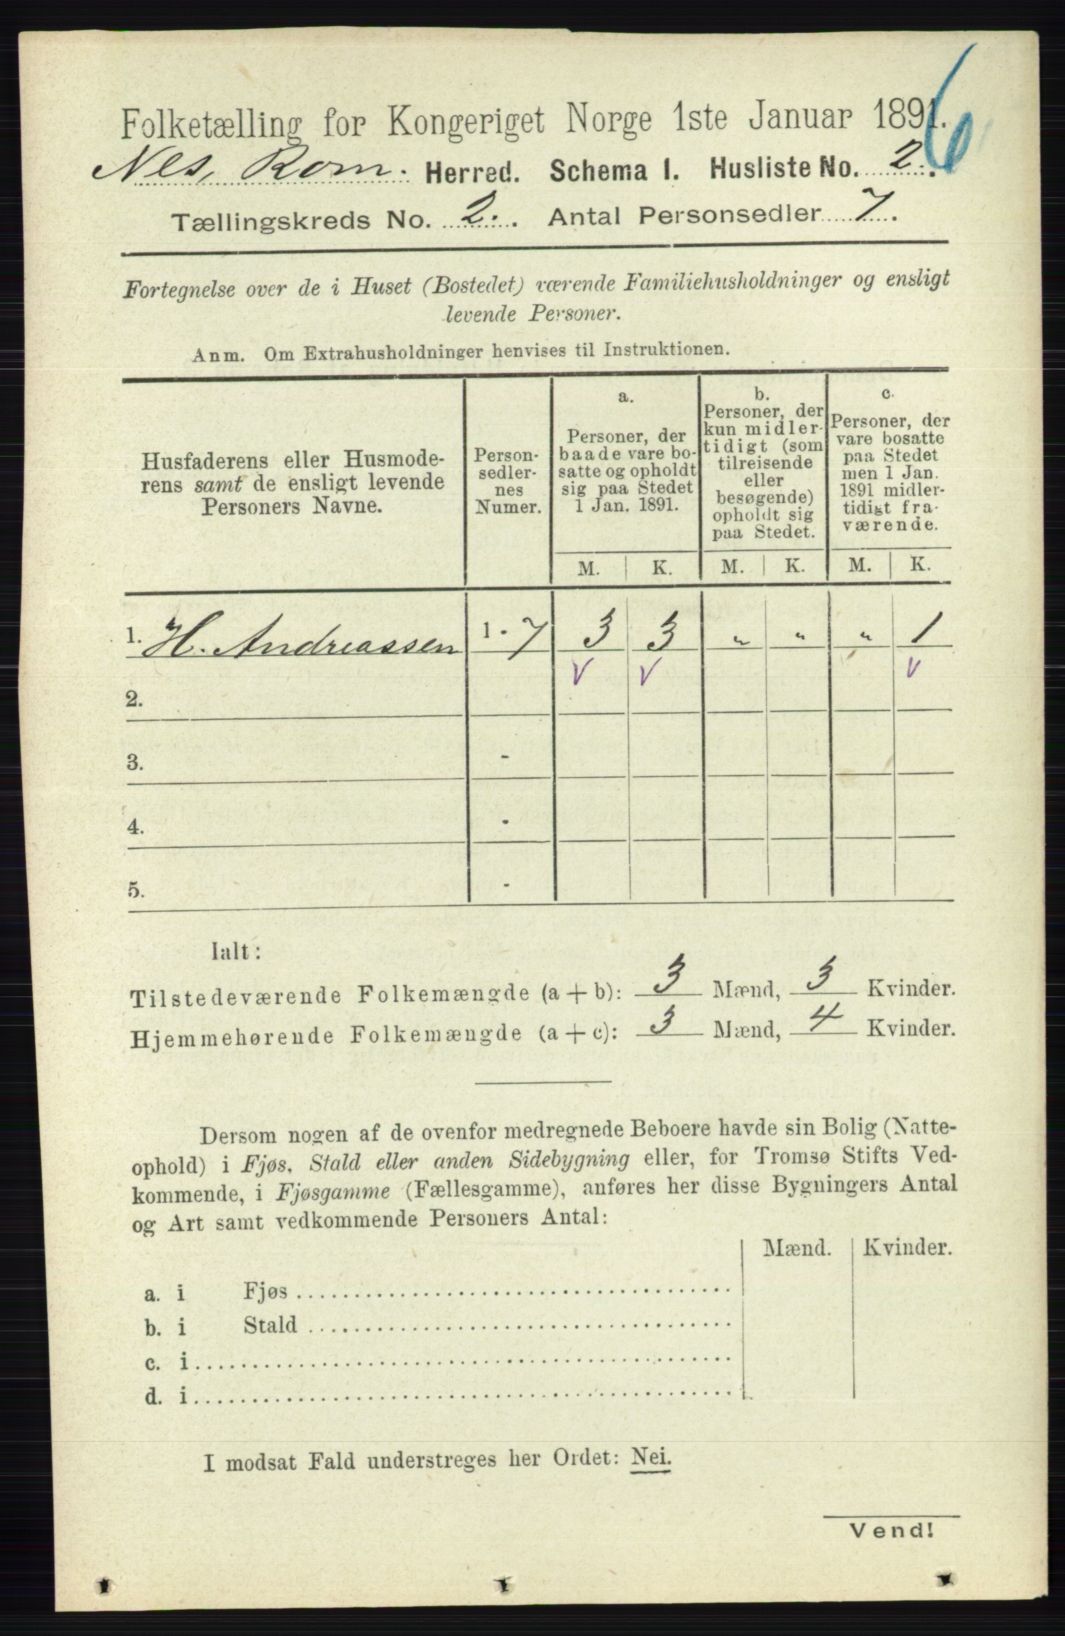 6
Folketælling for Kongeriget Norge 1ste Januar 1891.
Nes, Rom. Herred. Schema I. Husliste No. 2.
Tællingskreds No. 2. Antal Personsedler 7.
Fortegnelse over de i Huset (Bostedet) værende Familiehusholdninger og ensligt
levende Personer.
Anm. Om Extrahusholdninger henvises til Instruktionen.
Husfaderens eller Husmode-
rens samt de ensligt levende
Personers Navne.
Person-
sedler-
nes
Numer.
a.
Personer, der
baade vare bo-
satte og opholdt
sig paa Stedet
1 Jan. 1891.
b.
Personer, der
kun midler-
tidigt (som
tilreisende
eller
besøgende)
opholdt sig
paa Stedet.
c.
Personer, der
vare bosatte
paa Stedet
men 1 Jan.
1891 midler-
tidigt fra-
værende.
M. K. M. K. M. K.
1. H. Andreassen 1 - 7 3 3 „ „ „ 1
v v v
2.
3. -
4. -
5. -
Ialt:
Tilstedeværende Folkemængde (a + b): 3 Mænd, 3 Kvinder.
Hjemmehørende Folkemængde (a + c): 3 Mænd, 4 Kvinder.
Dersom nogen af de ovenfor medregnede Beboere havde sin Bolig (Natte-
ophold) i Fjøs, Stald eller anden Sidebygning eller, for Tromsø Stifts Ved-
kommende, i Fjøsgamme (Fællesgamme), anføres her disse Bygningers Antal
og Art samt vedkommende Personers Antal:
Mænd. Kvinder.
a. i Fjøs
b. i Stald
c. i
d. i
I modsat Fald understreges her Ordet: Nei.
Vend!